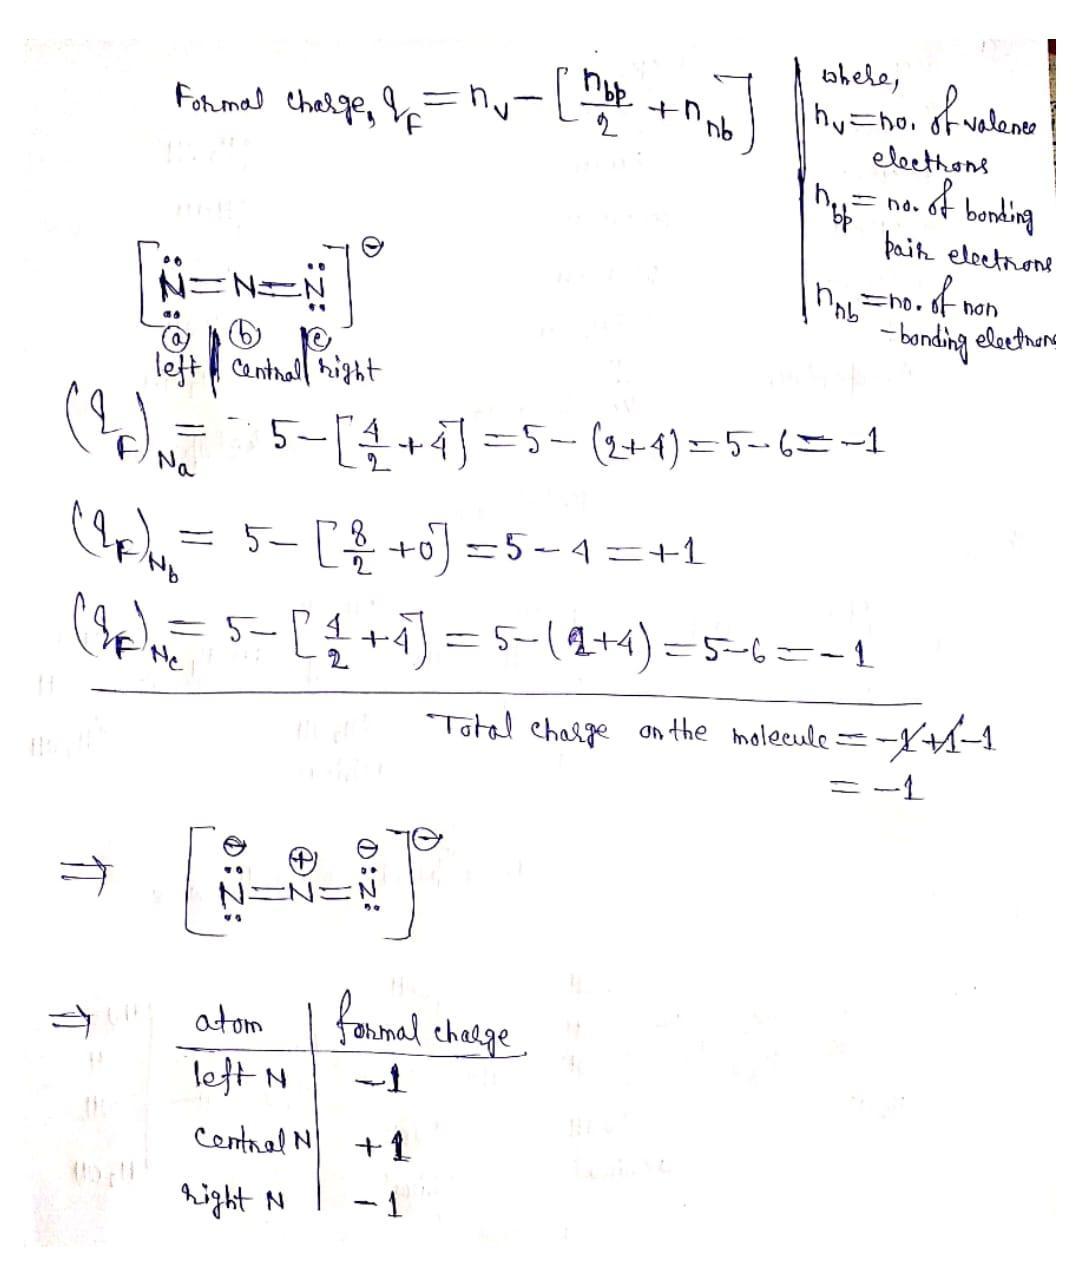 Formal charge, q_F = n_v − [n_bp/2 + n_nb]
where,
n_v = no. of valence
electrons
n_bp = no. of bonding
pair electrons
n_nb = no. of non
-bonding electrons
[:N̈=N=N̈:]⊖
ⓐ ⓑ ⓒ
left | central | right
(q_F)_Na = 5 − [4/2 + 4] = 5 − (2+4) = 5 − 6 = −1
(q_F)_Nb = 5 − [8/2 + 0] = 5 − 4 = +1
(q_F)_Nc = 5 − [4/2 + 4] = 5 − (2+4) = 5 − 6 = −1
Total charge on the molecule = −1+1−1
= −1
⇒ [:N̈=N=N̈:]⊖
⊖ ⊕ ⊖
⇒ atom | formal charge
left N | −1
Central N | +1
right N | −1